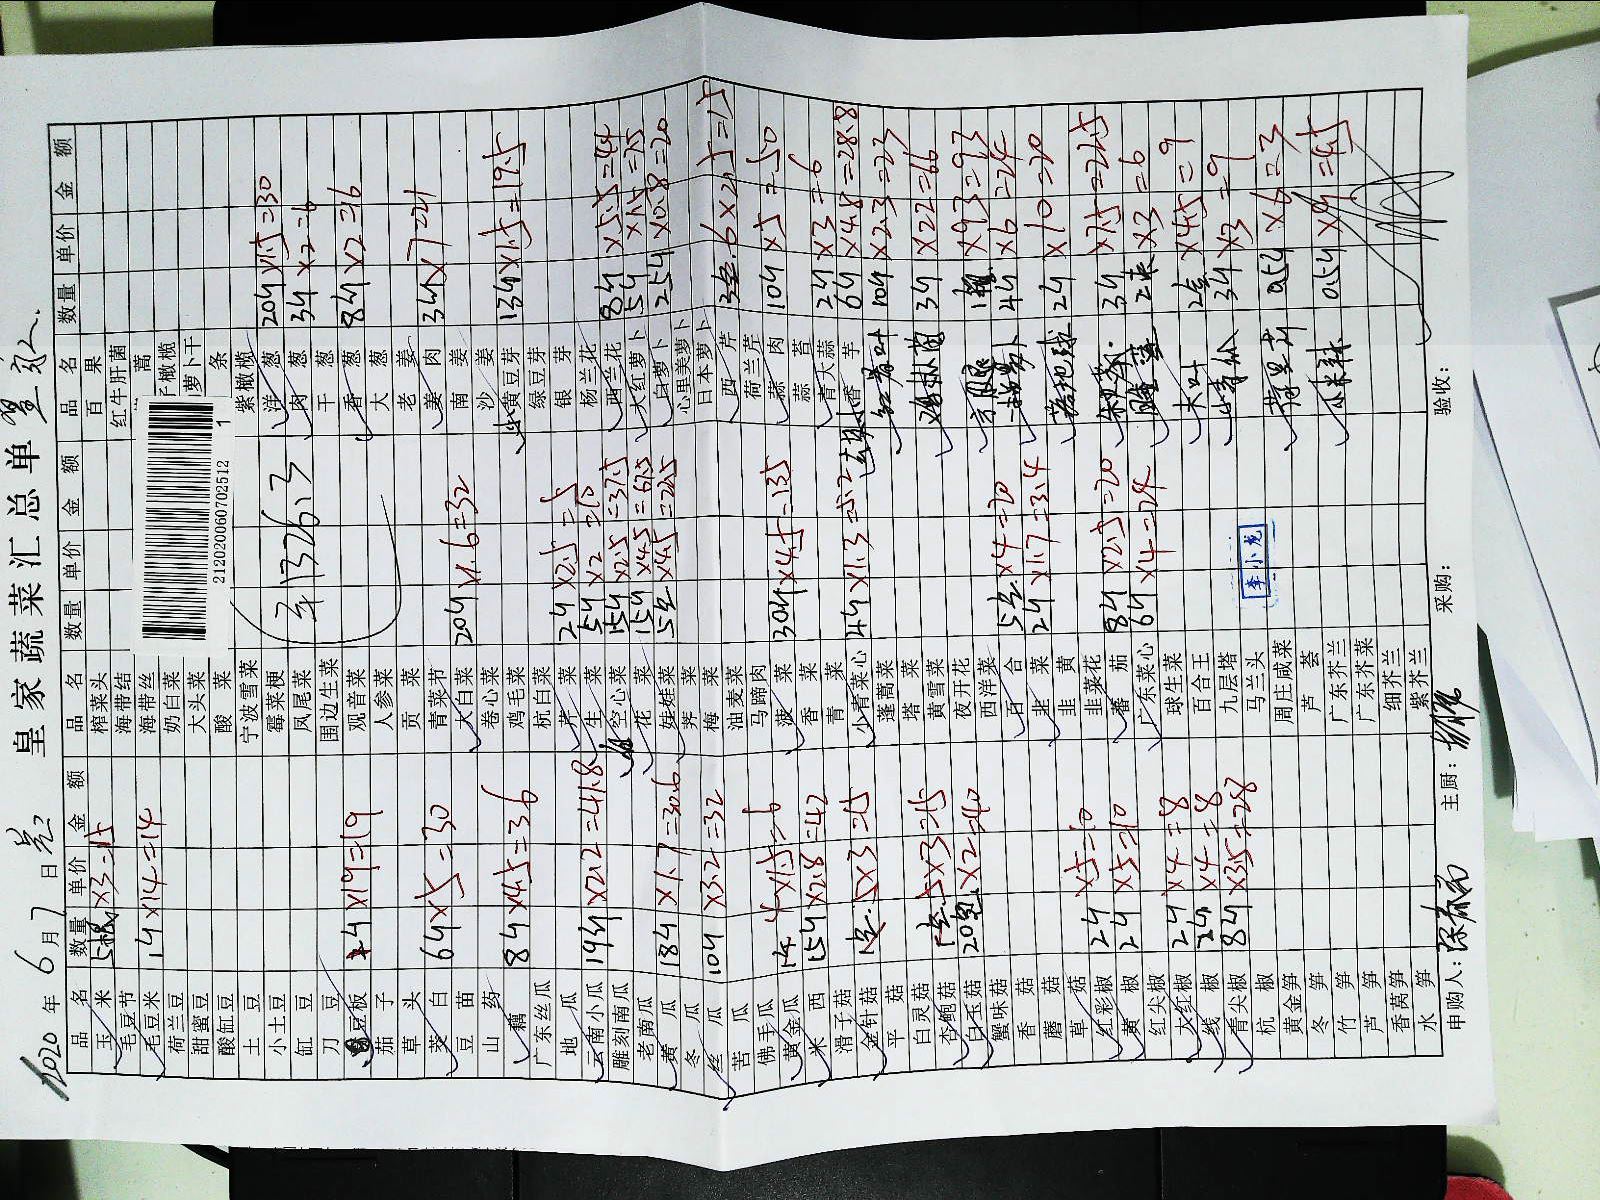 皇家蔬菜汇总单
2020年6月7日
品名 数量 单价 金额
玉米 5根×3=15
毛豆节
毛豆米 1斤×14=14
荷兰豆
甜蜜豆
酸缸豆
土豆
小土豆
缸豆
刀豆
豆板 1斤×19=19
茄子
草头
茭白 6斤×5=30
豆苗
山药
藕 8斤×4.5=36
广东丝瓜
地瓜
云南小瓜 19斤×2.2=41.8
雕刻南瓜
老南瓜
黄瓜 18斤×1.7=30.6
冬瓜
丝瓜 10斤×3.2=32
苦瓜
佛手瓜
黄金瓜 1斤
米西 15斤×2.8=42
滑子菇
金针菇 ×3=15
平菇
白灵菇
杏鲍菇 ×3=15
白玉菇 20包×2=40
蟹味菇
香菇
蘑菇
草菇
红彩椒 2斤×5=10
黄椒 2斤×5=10
红尖椒
大红椒 2斤×4=8
线椒 2斤×4=8
青尖椒 8斤×3.5=28
杭椒
黄金笋
冬笋
竹笋
芦笋
香莴笋
水笋
品名 数量 单价 金额
榨菜头
海带结
海带丝
奶白菜
大头菜
酸菜
宁波雪菜
霉菜梗
凤尾菜
围边生菜
观音菜
人参菜
贡菜
青菜节
大白菜 20斤×1.6=32
卷心菜
鸡毛菜
杭白菜
芹菜 2斤×2.5=5
生菜 5斤×2=10
空心菜 15斤×2.5=37.5
花菜 15斤×4.5=67.5
娃娃菜 5包×4.5=22.5
荠菜
梅菜
油麦菜
马蹄肉
菠菜 30斤×4.5=135
香菜
青菜
小青菜心 4斤×1.3=5.2
蓬蒿菜
塔菜
黄雪菜
夜开花
西洋菜
百合 5包×4=20
韭菜 2斤×1.7=3.4
韭黄
韭菜花
番茄 8斤×2.5=20
广东菜心 6斤×4=24
球生菜
百合王
九层塔
马兰头
周庄咸菜
芦荟
广东芥兰
广东芥菜
细芥兰
紫芥兰
1326.3
212020060702512
1
品名 数量 单价 金额
百果
红牛肝菌
蒿
子橄榄
萝卜干
条
紫橄榄
洋葱 20斤×1.5=30
肉葱 3斤×2=6
干葱
香葱 8斤×2=16
大葱
老姜
姜肉 3斤×7=21
南姜
沙姜
黄豆芽 13斤×1.5=19.5
绿豆芽
银芽
杨兰花
西兰花 8斤×5.5=44
大红萝卜 5斤×1.5=7.5
白萝卜 25斤×0.8=20
心里美萝卜
日本萝卜
西芹 ×2.5=15
荷兰芹
蒜肉 10斤×5=50
蒜苔
青大蒜 2斤×3=6
香芋 6斤×4.8=28.8
10斤×2.3=23
3斤×22=66
×93=93
4斤×6=24
2斤×10=20
3斤×7.5=22.5
×3=6
×4.5=9
3斤×3=9
0.5斤×6=3
小米辣 0.5斤×9=4.5
李小龙
申购人：
主厨：
采购：
验收：